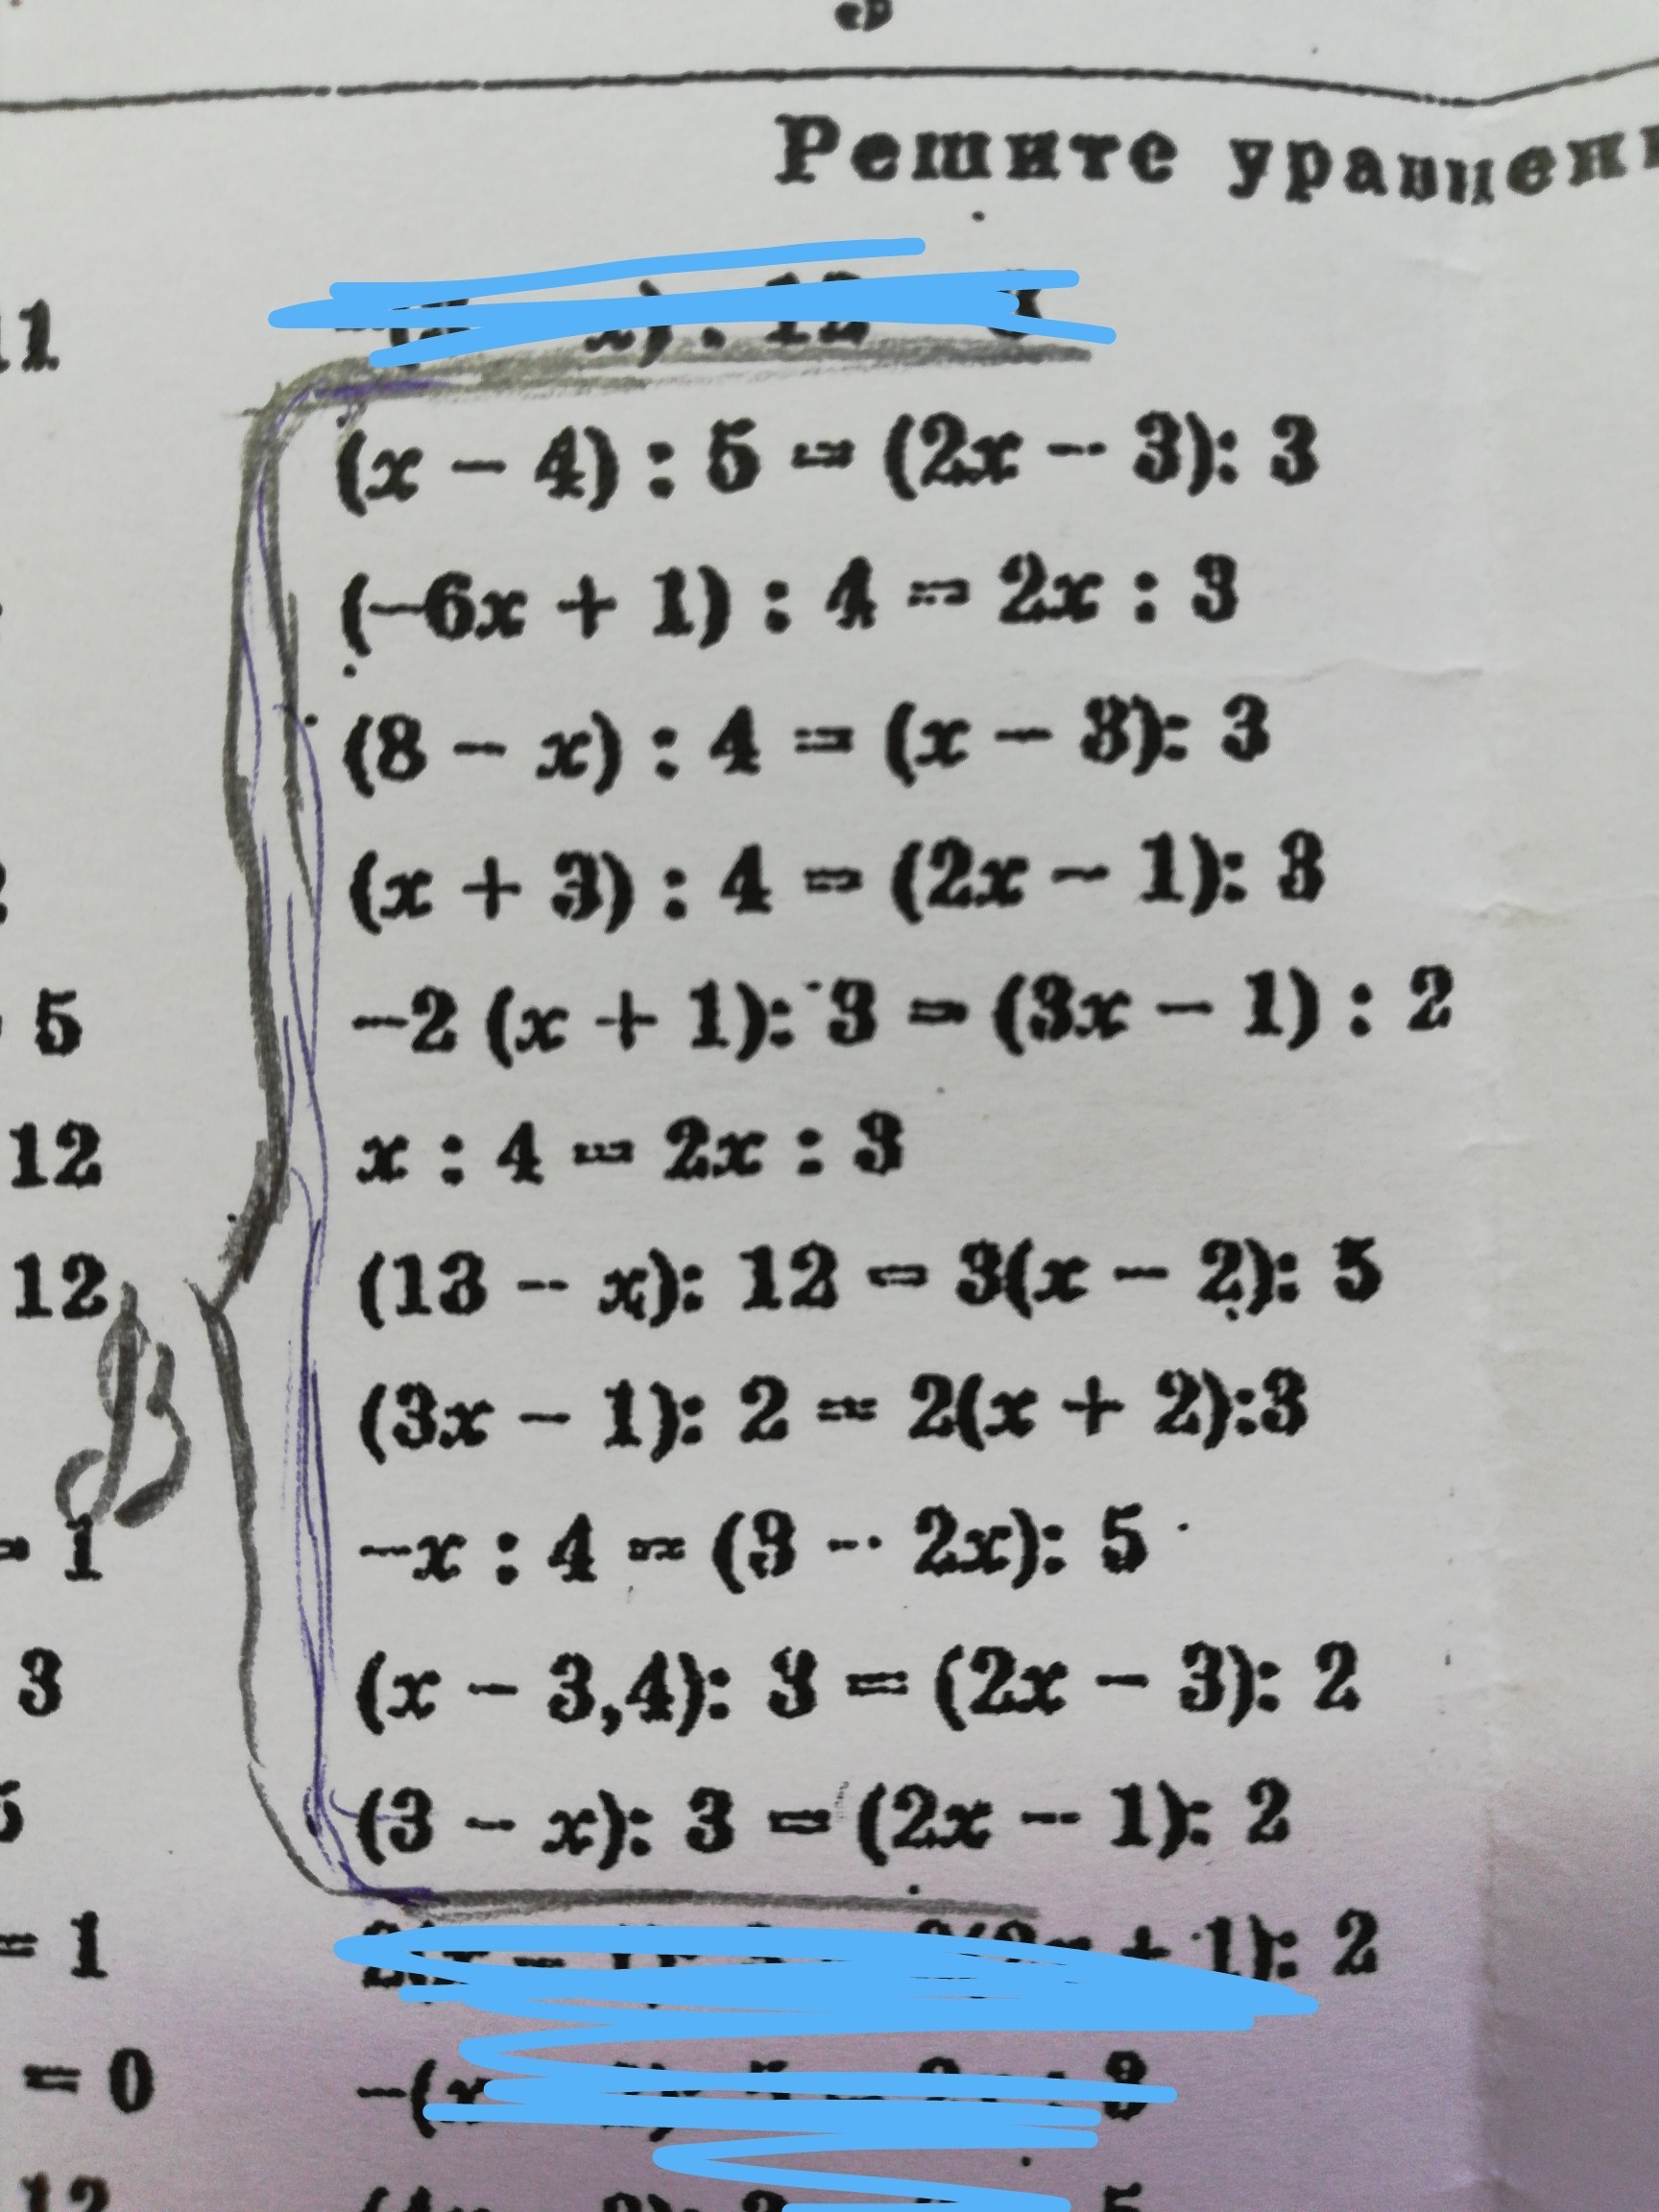 Решите уравнен
11
(x − 4) : 5 = (2x − 3): 3
(−6x + 1) : 4 = 2x : 3
(8 − x) : 4 = (x − 3): 3
(x + 3) : 4 = (2x − 1): 3
5 −2 (x + 1): 3 = (3x − 1) : 2
12 x : 4 = 2x : 3
12 (13 − x): 12 = 3(x − 2): 5
В
(3x − 1): 2 = 2(x + 2):3
= 1 −x : 4 = (3 − 2x): 5
3 (x − 3,4): 3 = (2x − 3): 2
(3 − x): 3 = (2x − 1): 2
= 1 + 1): 2
= 0 −( 3
12